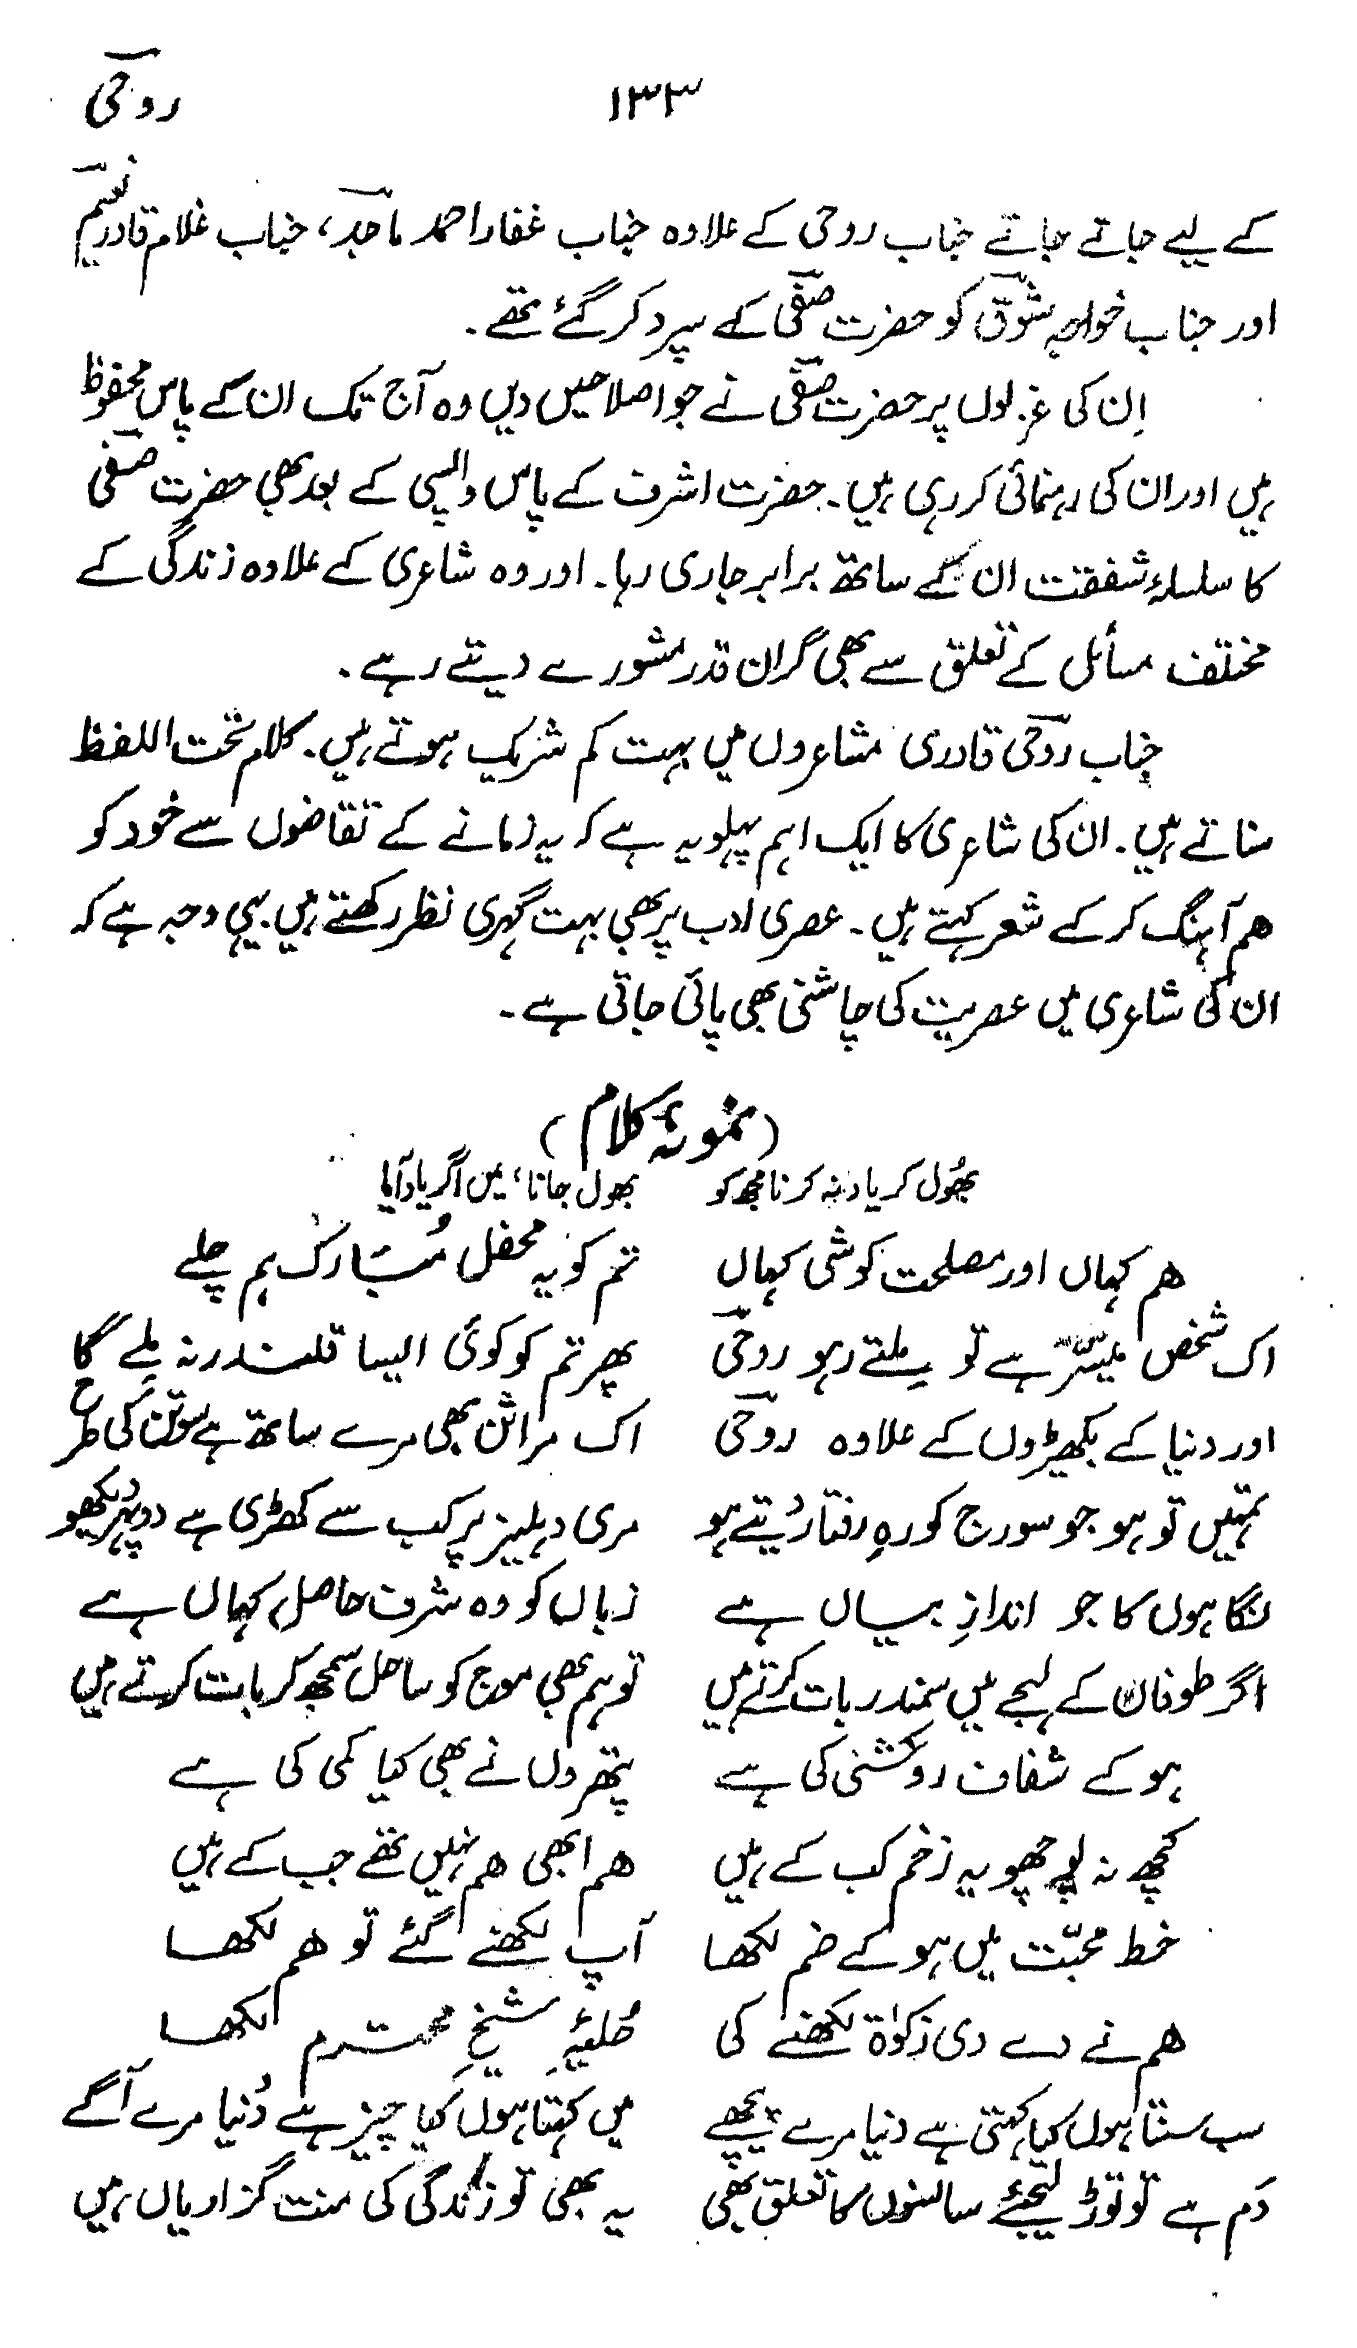 روحیؔ ۱۳۳
کے لیے جاتے جاتے جناب روحی کے علاوہ جناب غفار احمد ماجدؔ، جناب غلام قادر نعیمؔ
اور جناب خواجہ شوقؔ کو حضرت صفیؔ کے سپرد کر گئے تھے۔
اِن کی غزلوں پر حضرت صفیؔ نے جو اصلاحیں دیں وہ آج تک ان کے پاس محفوظ
ہیں اور ان کی رہنمائی کر رہی ہیں۔ حضرت اشرف کے پاس واپسی کے بعد بھی حضرت صفیؔ
کا سلسلۂ شفقت ان کے ساتھ برابر جاری رہا۔ اور وہ شاعری کے علاوہ زندگی کے
مختلف مسائل کے تعلق سے بھی گران قدر مشورے دیتے رہے۔
جناب روحیؔ قادری مشاعروں میں بہت کم شریک ہوتے ہیں۔ کلام تحت اللفظ
سناتے ہیں۔ ان کی شاعری کا ایک اہم پہلو یہ ہے کہ یہ زمانے کے تقاضوں سے خود کو
ہم آہنگ کر کے شعر کہتے ہیں۔ عصری ادب پر بھی بہت گہری نظر رکھتے ہیں یہی وجہ ہے کہ
ان کی شاعری میں عصریت کی چاشنی بھی پائی جاتی ہے۔
(نمونۂ کلام)
بھُول کر یاد نہ کرنا مجھ کو بھول جانا، میں اگر یاد آیا
ہم کہاں اور مصلحت کوشی کہاں تم کو یہ محفل مُبَارک ہم چلے
اک شخص میسّر ہے تو مِلتے رہو روحیؔ پھر تم کو کوئی ایسا قلندر نہ مِلے گا
اور دنیا کے بکھیڑوں کے علاوہ روحیؔ اک مرا فن بھی مرے ساتھ ہے سوتن کی طرح
تمہیں تو ہو جو سورج کو رہِ رفتار دُیتے ہو مری دہلیز پر کب سے کھڑی ہے دوپہر دیکھو
نگاہوں کا جو اندازِ بیاں ہے زباں کو وہ شرف حاصل کہاں ہے
اگر طوفاں کے لہجے میں سمندر بات کرتے ہیں تو ہم بھی موج کو ساحل سمجھ کر بات کرتے ہیں
ہو کے شفاف روکشنی کی ہے پتھروں نے بھی کیا کمی کی ہے
کچھ نہ پوچھو یہ زخم کب کے ہیں ہم ابھی ہم نہیں تھے جب کے ہیں
خط محبّت میں ہو کے ضم لکھا آپ لکھنے گئے تو ہم لکھا
ہم نے دے دی زکوٰۃ لکھنے کی حُلیۂِ شیخِ محترم لکھا
سب سنتا ہوں کیا کہتی ہے دنیا مرے پیچھے میں کہتا ہوں کیا چیز ہے دُنیا مرے آگے
دَم ہے تو توڑ لیجئے سانسوں کا تعلق بھی یہ بھی تو زندگی کی منت گزاریاں ہیں